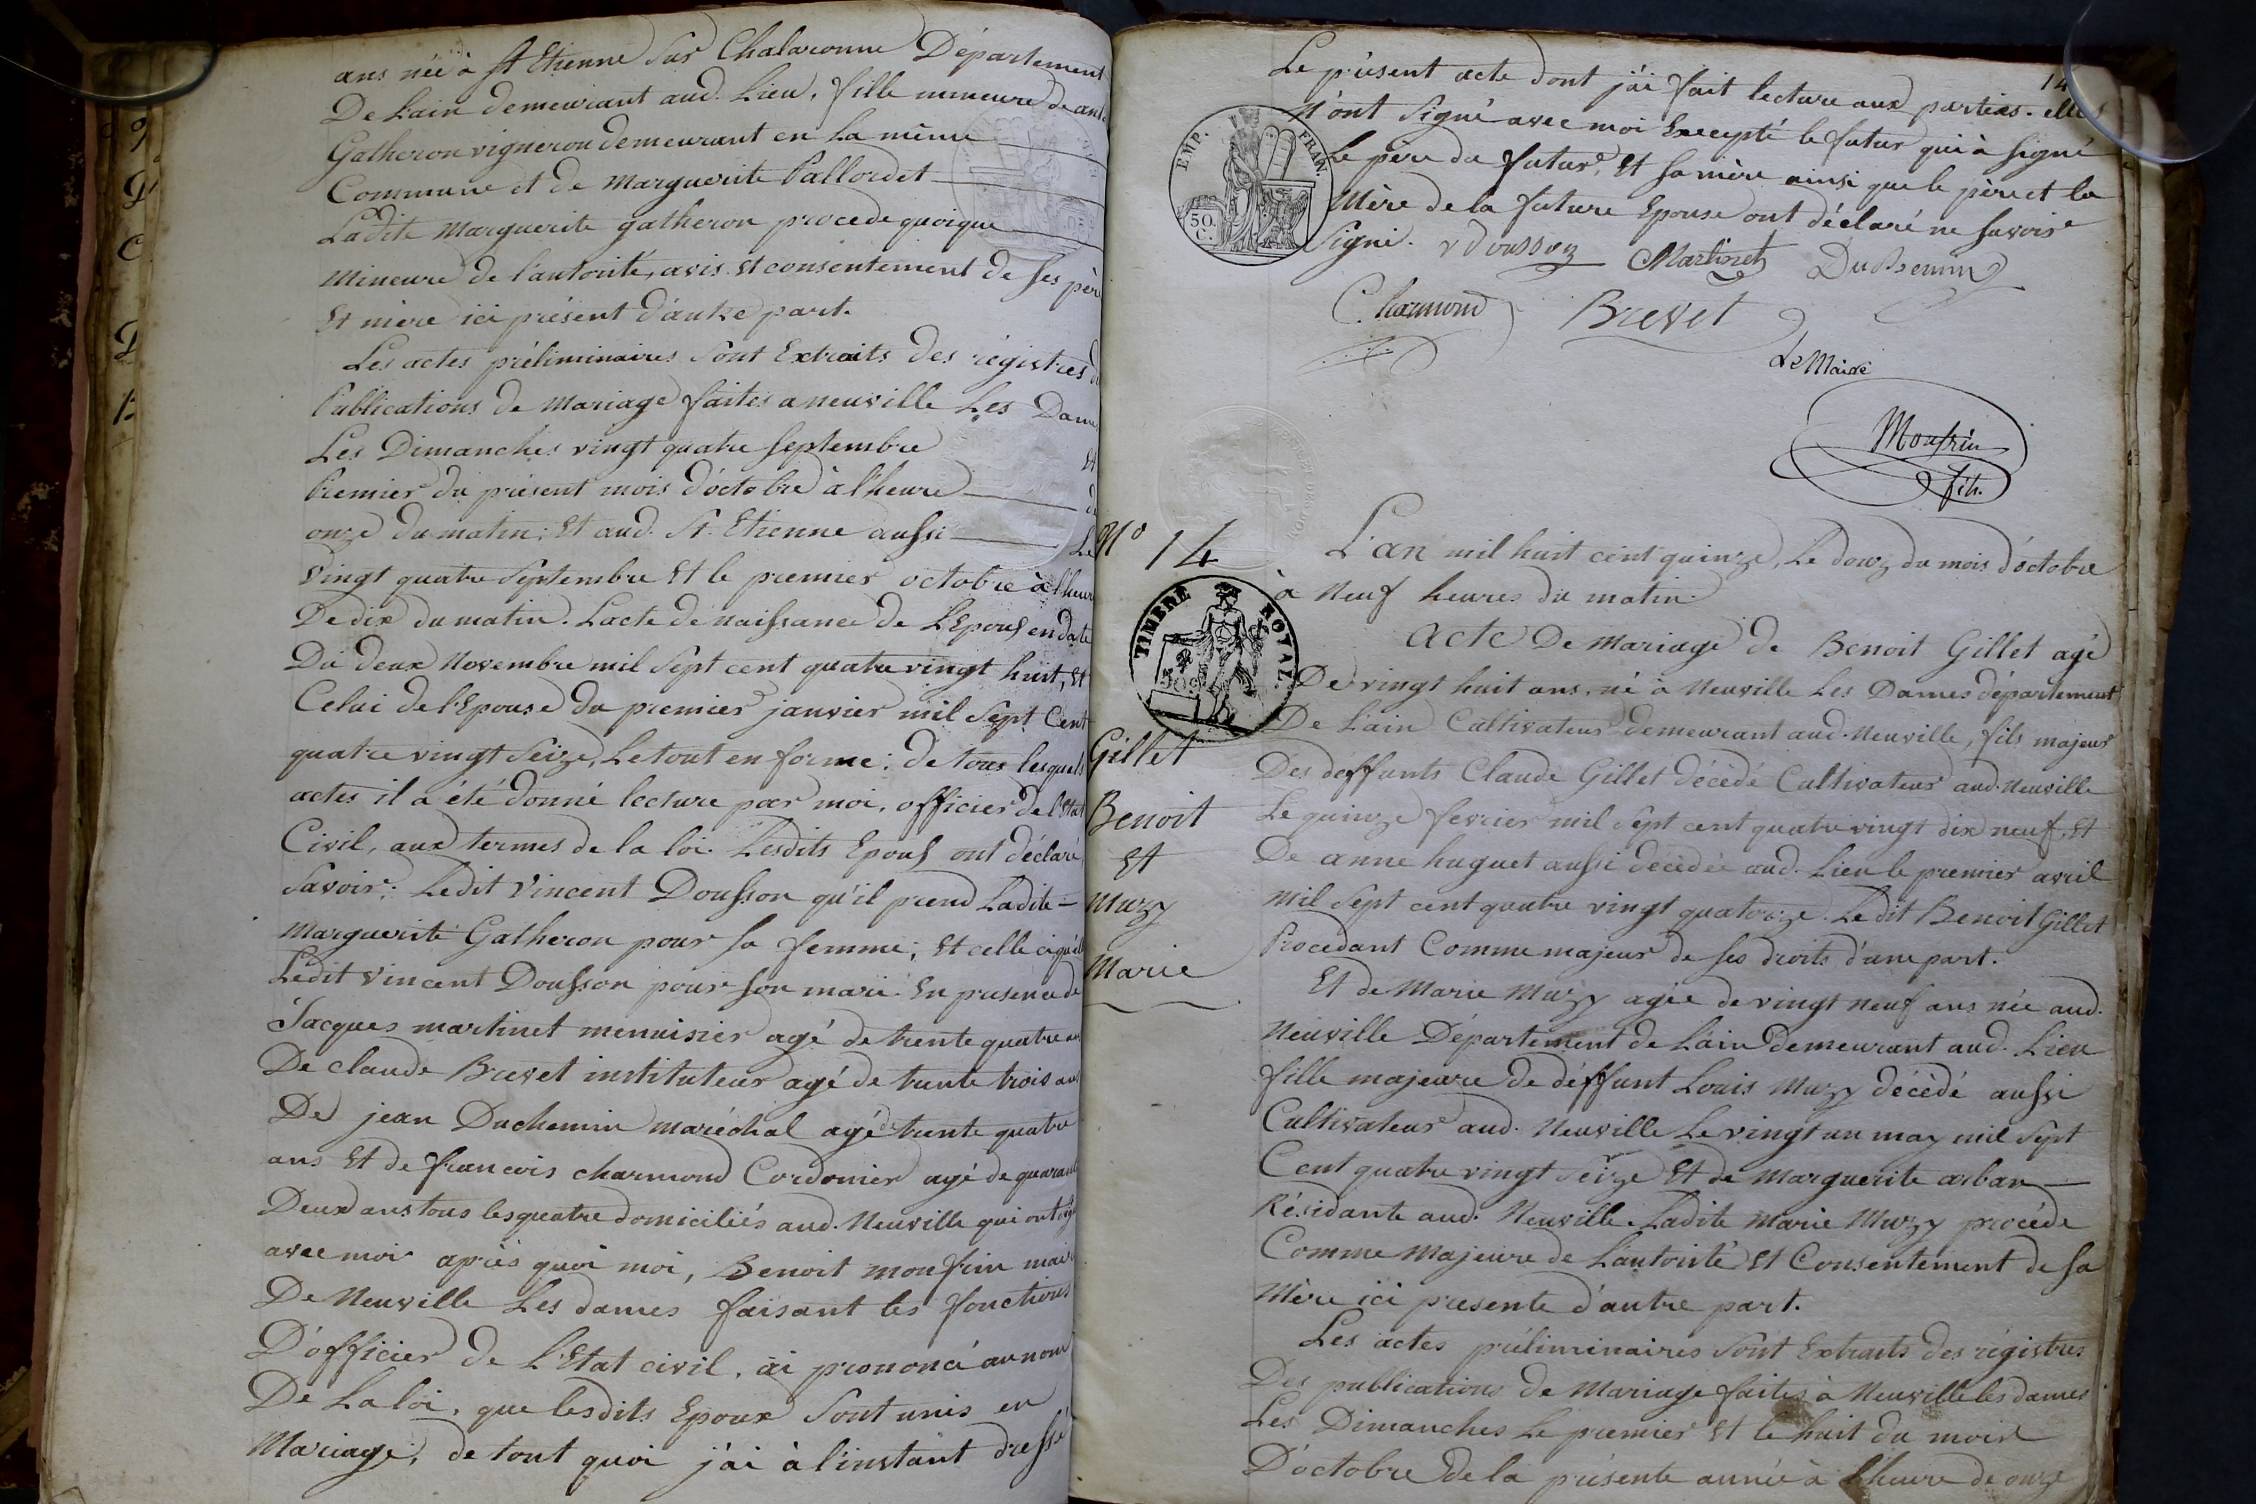 ans née à St Etienne Sur Chalaronne Département
De Lain demeurant aud. Lieu, fille mineure de
Gatheron vigneron demeurant en la même
Commune et de Marguerite Pallordet
Ladite Marguerite gatheron procede quoique
Mineure de l'autorité, avis et consentement de ses père
Et mère ici présent d'autre part.
Les actes préliminaires sont Extraits des régistres
Publications de Mariage faites a neuville Les Dames
Les Dimanches vingt quatre Septembre Et
Premier du présent mois d'octobre à l'heure de
onze du matin; Et aud. St. Etienne aussi Le
Vingt quatre Septembre Et le premier octobre à l'heure
De dix du matin. L'acte de naissance de L'Epoux en date
Du deux Novembre mil Sept cent quatre vingt huit, Et
Celui de l'Epouse du premier janvier mil Sept Cent
quatre vingt Seize, Le tout en forme: de tous lesquels
actes il a été donné lecture par moi, officier de l'Etat
Civil, aux termes de la loi. Lesdits Epoux ont déclaré
Savoir: Ledit Vincent Dousson qu'il prend Ladite
Marguerite Gatheron pour sa femme; Et celle ci qu'elle
Ledit Vincent Dousson pour son mari. En presence de
Jacques martinet menuisier agé de trente quatre ans
De Claude Brevet instituteur agé de trente trois ans
De jean Duchemin maréchal agé de trente quatre
ans Et de francois charmond Cordonier agé de quarante
Deux ans tous les quatre domiciliés aud. Neuville qui ont signé
avec moi après quoi moi, Benoit monfrin maire
De Neuville Les dames faisant les fonctions
D'officier de L'Etat civil, ai prononcé au nom
De La loi, que lesdits Epoux sont unis en
Mariage; de tout quoi j'ai à l'instant dressé
14
Le présent acte dont j'ai fait lecture aux parties. elles
n'ont Signé avec moi Excepté le futur qui à signé
Le père du futur, Et sa mère ainsi que le père et la
Mère de la future Epouse ont déclaré ne savoir
Signé. v doussoy Martinet Duchemin
C. harmond Brevet
Le Maire
Monfrin
fils.
EMP. FRAN.
50.
C.
N° 14
L'an mil huit cent quinze, Le douze du mois d'octobre
à Neuf heures du matin.
TIMBRE ROYAL.
Acte De Mariage de Benoit Gillet agé
De vingt huit ans, né à Neuville Les Dames département
De Lain Cultivateur demeurant aud. Neuville, fils majeur
Gillet
Benoit
Et
Muzy
Marie
Des deffunts Claude Gillet décédé Cultivateur aud. Neuville
Le quinze fevrier mil Sept cent quatre vingt dix neuf, Et
De anne huguet aussi décédée aud. Lieu le premier avril
mil Sept cent quatre vingt quatorze. Ledit Benoit Gillet
Procedant Comme majeur de ses droits d'une part.
Et de Marie Muzy agée de vingt neuf ans née aud.
Neuville Département de Lain demeurant aud. Lieu
fille majeure de déffunt Louis Muzy décédé aussi
Cultivateur aud. Neuville Le vingt un may mil Sept
Cent quatre vingt Seize Et de Marguerite arban
Résidante aud. Neuville. Ladite Marie Muzy procéde
Comme Majeure de L'autorité Et Consentement de sa
Mère ici presente d'autre part.
Les actes préliminaires sont Extraits des régistres
Des publications de Mariage faites à Neuville les dames
Les Dimanches Le premier Et le huit du mois
D'octobre de la présente année à l'heure de onze